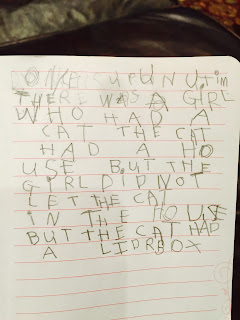 ONKE SUPUN U TIM
THERE WAS A GIRL
WHO HAD A
CAT THE CAT
HAD A HO
USE BUT THE
GIRL DID NOT
LET THE CAT
IN THE HOUSE
BUT THE CAT HAD
A LIDRBOX